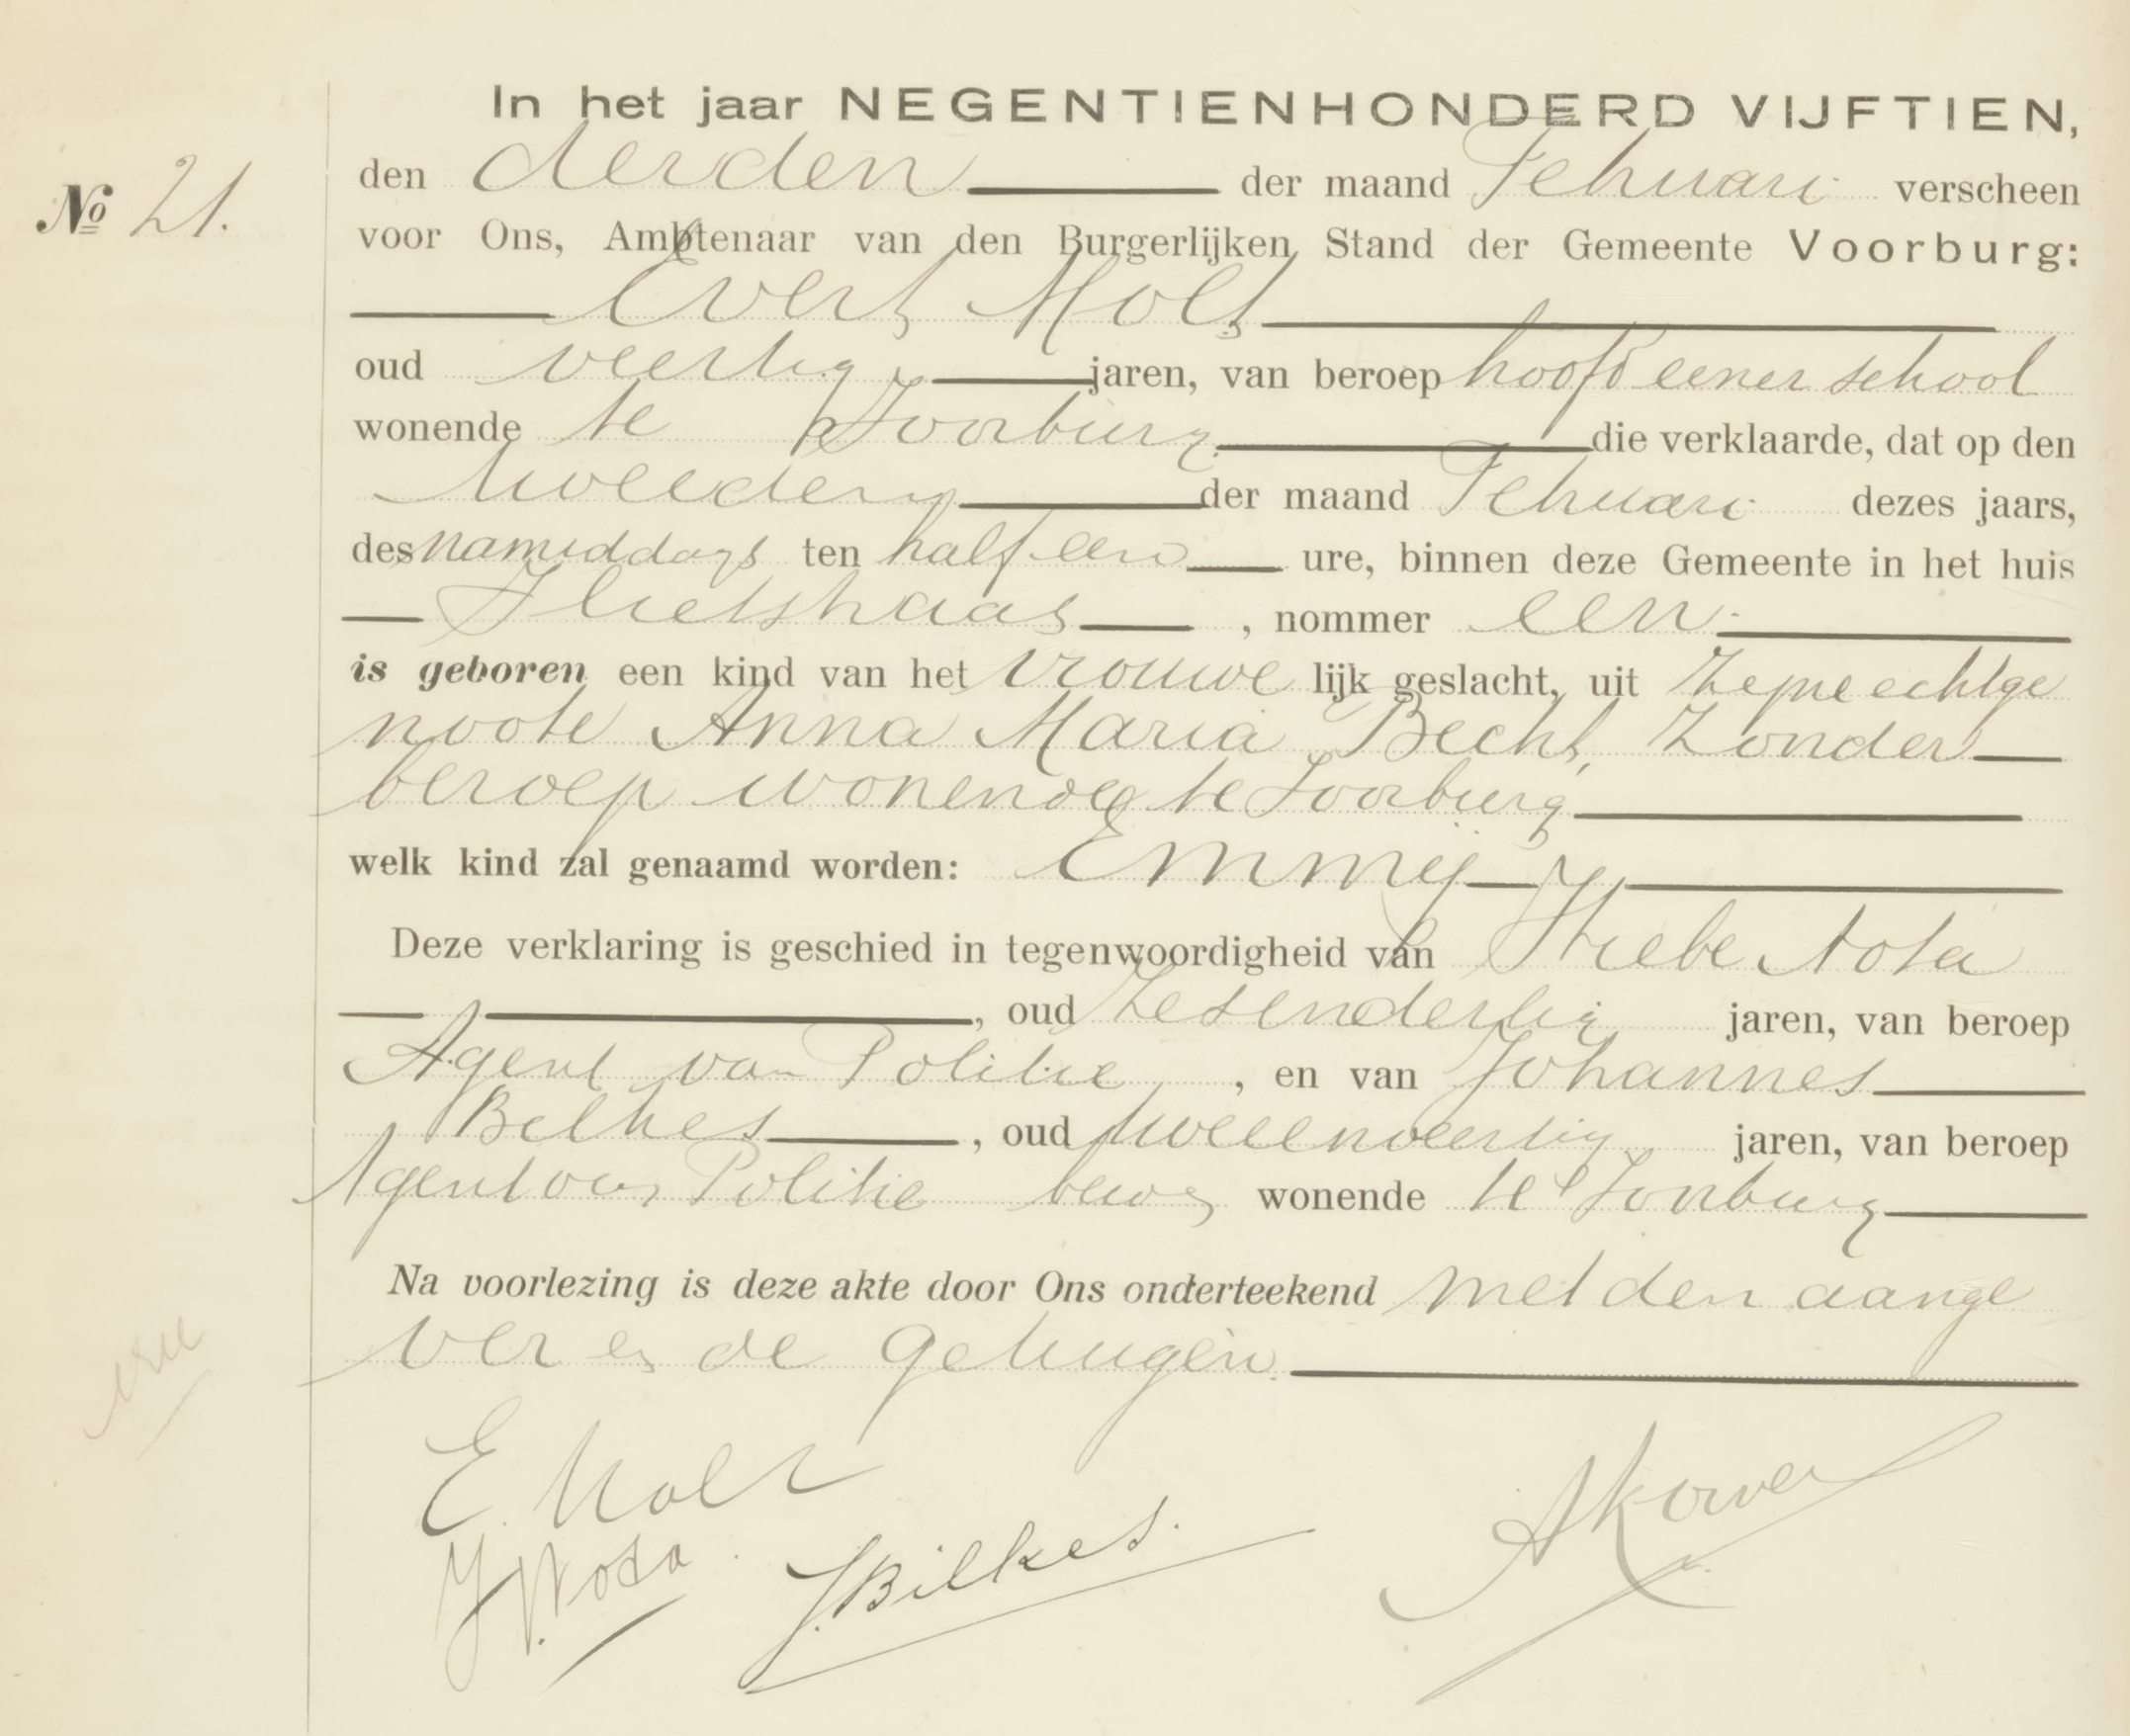 In het jaar NEGENTIENHONDERD VIJFTIEN,
den derden der maand Februari verscheen
No 21.
voor Ons, Ambtenaar van den Burgerlijken Stand der Gemeente Voorburg:
Evert Mols
oud veertig jaren, van beroep hoofd eener school
wonende te Voorburg die verklaarde, dat op den
tweeden der maand Februari dezes jaars,
des namiddags ten half een ure, binnen deze Gemeente in het huis
, nommer een
is geboren een kind van het vrouwe lijk geslacht, uit Zijne echtge
noote Anna Maria Becht, Zonder
beroep wonende te Voorburg
welk kind zal genaamd worden: Emmy
Deze verklaring is geschied in tegenwoordigheid van Nota
, oud Zesendertig jaren, van beroep
Agent van Politie, en van Johannes
Bilkes, oud tweeenveertig jaren, van beroep
Agent van Politie beiden wonende te Voorburg
Na voorlezing is deze akte door Ons onderteekend met den aange
ver en de getuigen.
E. Mols
Nota J. Bilkes.